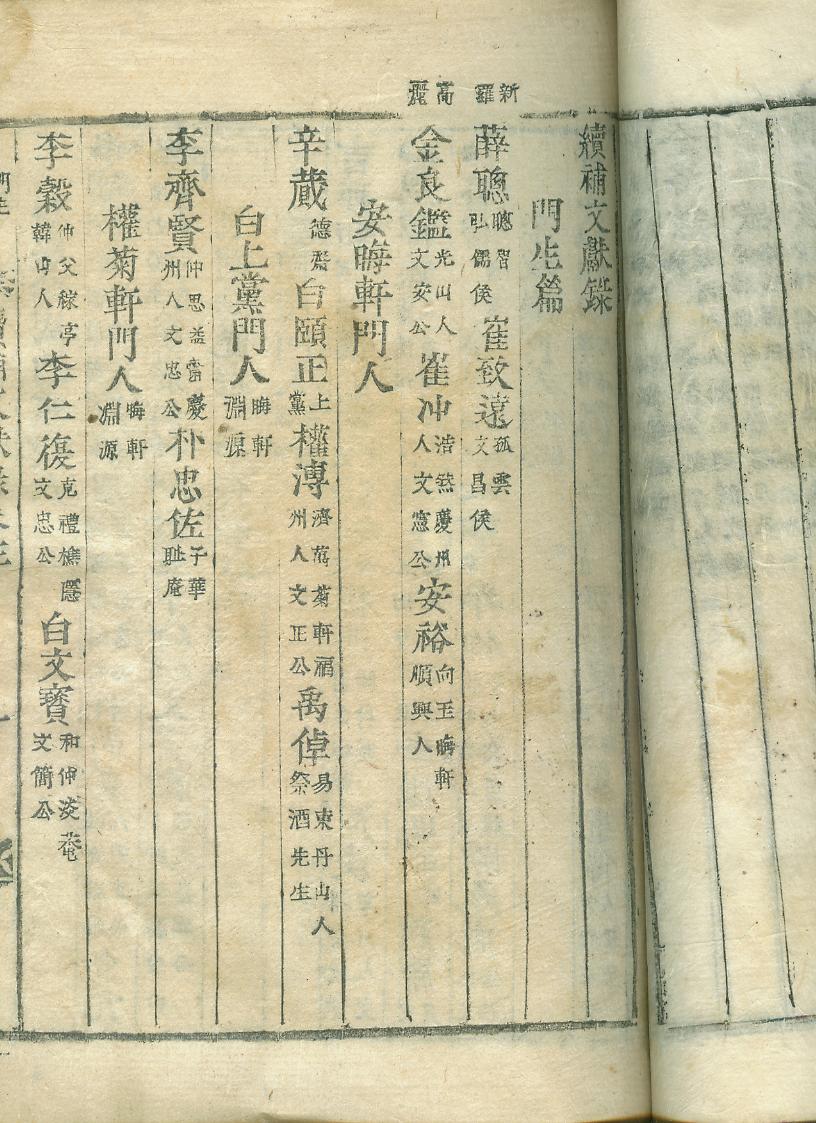 新羅
高麗
續補文獻錄
門生篇
薛聰 聰智弘儒侯 崔致遠 孤雲文昌侯
金良鑑 光山人文安公 崔冲 浩然慶州人文憲公 安裕 向王晦軒順興人
安晦軒門人
辛蕆 德齋 白頤正 上黨 權溥 濟萬菊軒福州人文正公 禹倬 易東丹山人祭酒先生
白上黨門人 晦軒淵源
李齊賢 仲思益齋慶州人文忠公 朴忠佐 子華恥庵
權菊軒門人 晦軒淵源
李穀 仲父稼亭韓山人 李仁復 克禮樵隱文忠公 白文寶 和仲淡菴文簡公